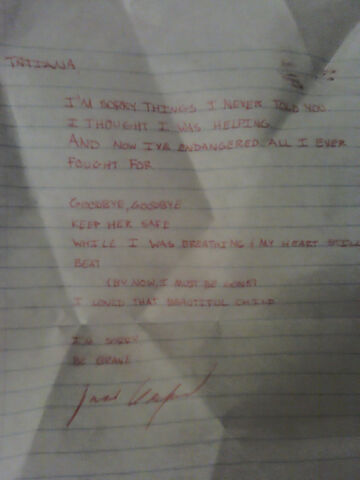 TATIANA
I'M SORRY THINGS I NEVER TOLD YOU
I THOUGHT I WAS HELPING
AND NOW I'VE ENDANGERED ALL I EVER
FOUGHT FOR
GOODBYE, GOODBYE
KEEP HER SAFE
WHILE I WAS BREATHING & MY HEART STILL
BEAT
(BY NOW, I MUST BE GONE)
I LOVED THAT BEAUTIFUL CHILD
I'M SORRY
BE BRAVE